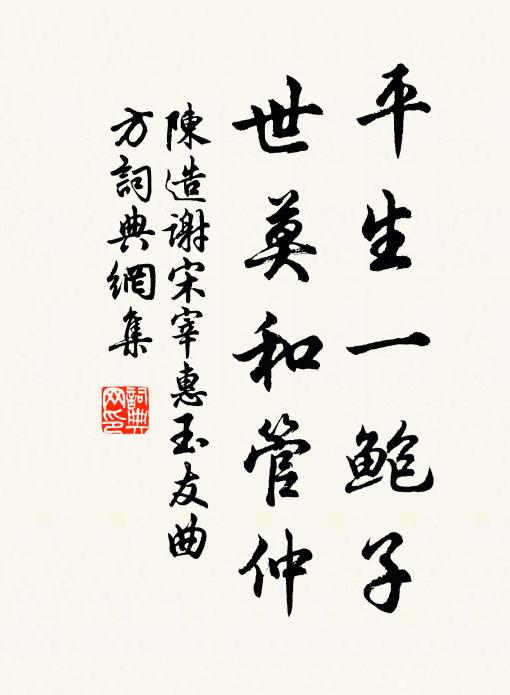 平生一鲍子
世莫和管仲
陳造謝宋宰惠玉友曲
方詞典網集
詞典
网印